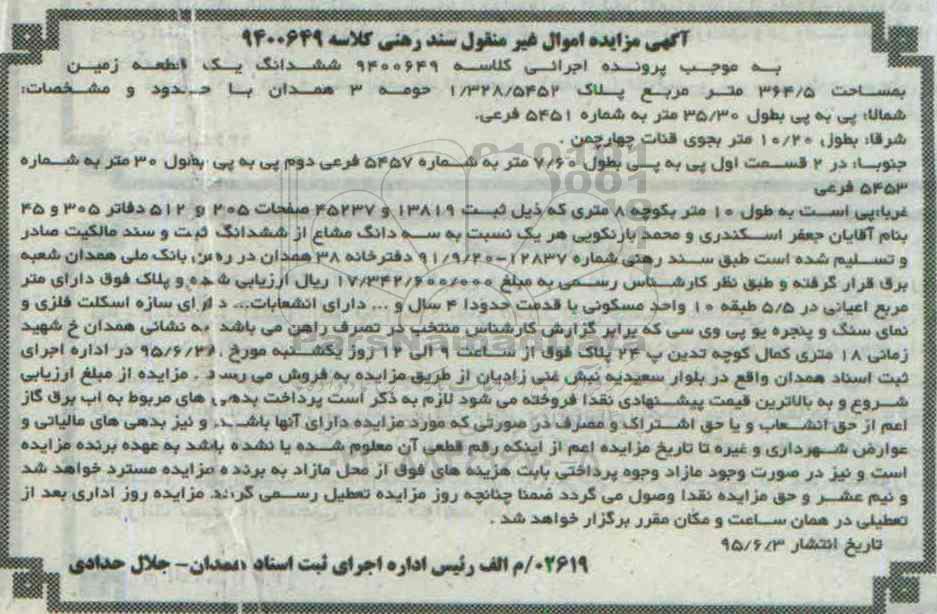 آگهی مزایده اموال غیر منقول سند رهنی کلاسه ۹۴۰۰۶۴۹
به موجب پرونده اجرائی کلاسه ۹۴۰۰۶۴۹ ششدانگ یک قطعه زمین
بمساحت ۳۶۴/۵ متر مربع پلاک ۱/۳۲۸/۵۴۵۲ حومه ۳ همدان با حدود و مشخصات:
شمالا: پی به پی بطول ۳۵/۳۰ متر به شماره ۵۴۵۱ فرعی.
شرقا: بطول ۱۰/۲۰ متر بجوی قنات چهارچمن .
جنوبا: در ۲ قسمت اول پی به پی بطول ۷/۶۰ متر به شماره ۵۴۵۷ فرعی دوم پی به پی بطول ۳۰ متر به شماره
۵۴۵۳ فرعی
غربا:پی است به طول ۱۰ متر بکوچه ۸ متری که ذیل ثبت ۱۳۸۱۹ و ۴۵۲۳۷ صفحات ۲۰۵ و ۵۱۲ دفاتر ۳۰۵ و ۴۵
بنام آقایان جعفر اسکندری و محمد بارنکویی هر یک نسبت به سه دانگ مشاع از ششدانگ ثبت و سند مالکیت صادر
و تسلیم شده است طبق سند رهنی شماره ۱۲۸۳۷-۹۱/۹/۲۰ دفترخانه ۳۸ همدان در رهن بانک ملی همدان شعبه
برق قرار گرفته و طبق نظر کارشناس رسمی به مبلغ ۱۷/۳۴۲/۶۰۰/۰۰۰ ریال ارزیابی شده و پلاک فوق دارای متر
مربع اعیانی در ۵/۵ طبقه ۱۰ واحد مسکونی با قدمت حدودا ۴ سال و ... دارای انشعابات... دارای سازه اسکلت فلزی و
نمای سنگ و پنجره یو پی وی سی که برابر گزارش کارشناس منتخب در تصرف راهن می باشد به نشانی همدان خ شهید
زمانی ۱۸ متری کمال کوچه تدین پ ۲۴ پلاک فوق از ساعت ۹ الی ۱۲ روز یکشنبه مورخ در اداره اجرای
ثبت اسناد همدان واقع در بلوار سعیدیه نبش غنی زادیان از طریق مزایده به فروش می رسد . مزایده از مبلغ ارزیابی
شروع و به بالاترین قیمت پیشنهادی نقدا فروخته می شود لازم به ذکر است پرداخت بدهی های مربوط به اب برق گاز
اعم از حق انشعاب و یا حق اشتراک و مصرف در صورتی که مورد مزایده دارای آنها باشد و نیز بدهی های مالیاتی و
عوارض شهرداری و غیره تا تاریخ مزایده اعم از اینکه رقم قطعی آن معلوم شده یا نشده باشد به عهده برنده مزایده
است و نیز در صورت وجود مازاد وجوه پرداختی بابت هزینه های فوق از محل مازاد به برنده مزایده مسترد خواهد شد
و نیم عشر و حق مزایده نقدا وصول می گردد ضمنا چنانچه روز مزایده تعطیل رسمی گردد مزایده روز اداری بعد از
تعطیلی در همان ساعت و مکان مقرر برگزار خواهد شد .
تاریخ انتشار ۹۵/۶/۳
۰۲۶۱۹/م الف رئیس اداره اجرای ثبت اسناد همدان- جلال حدادی
ParsNamadData